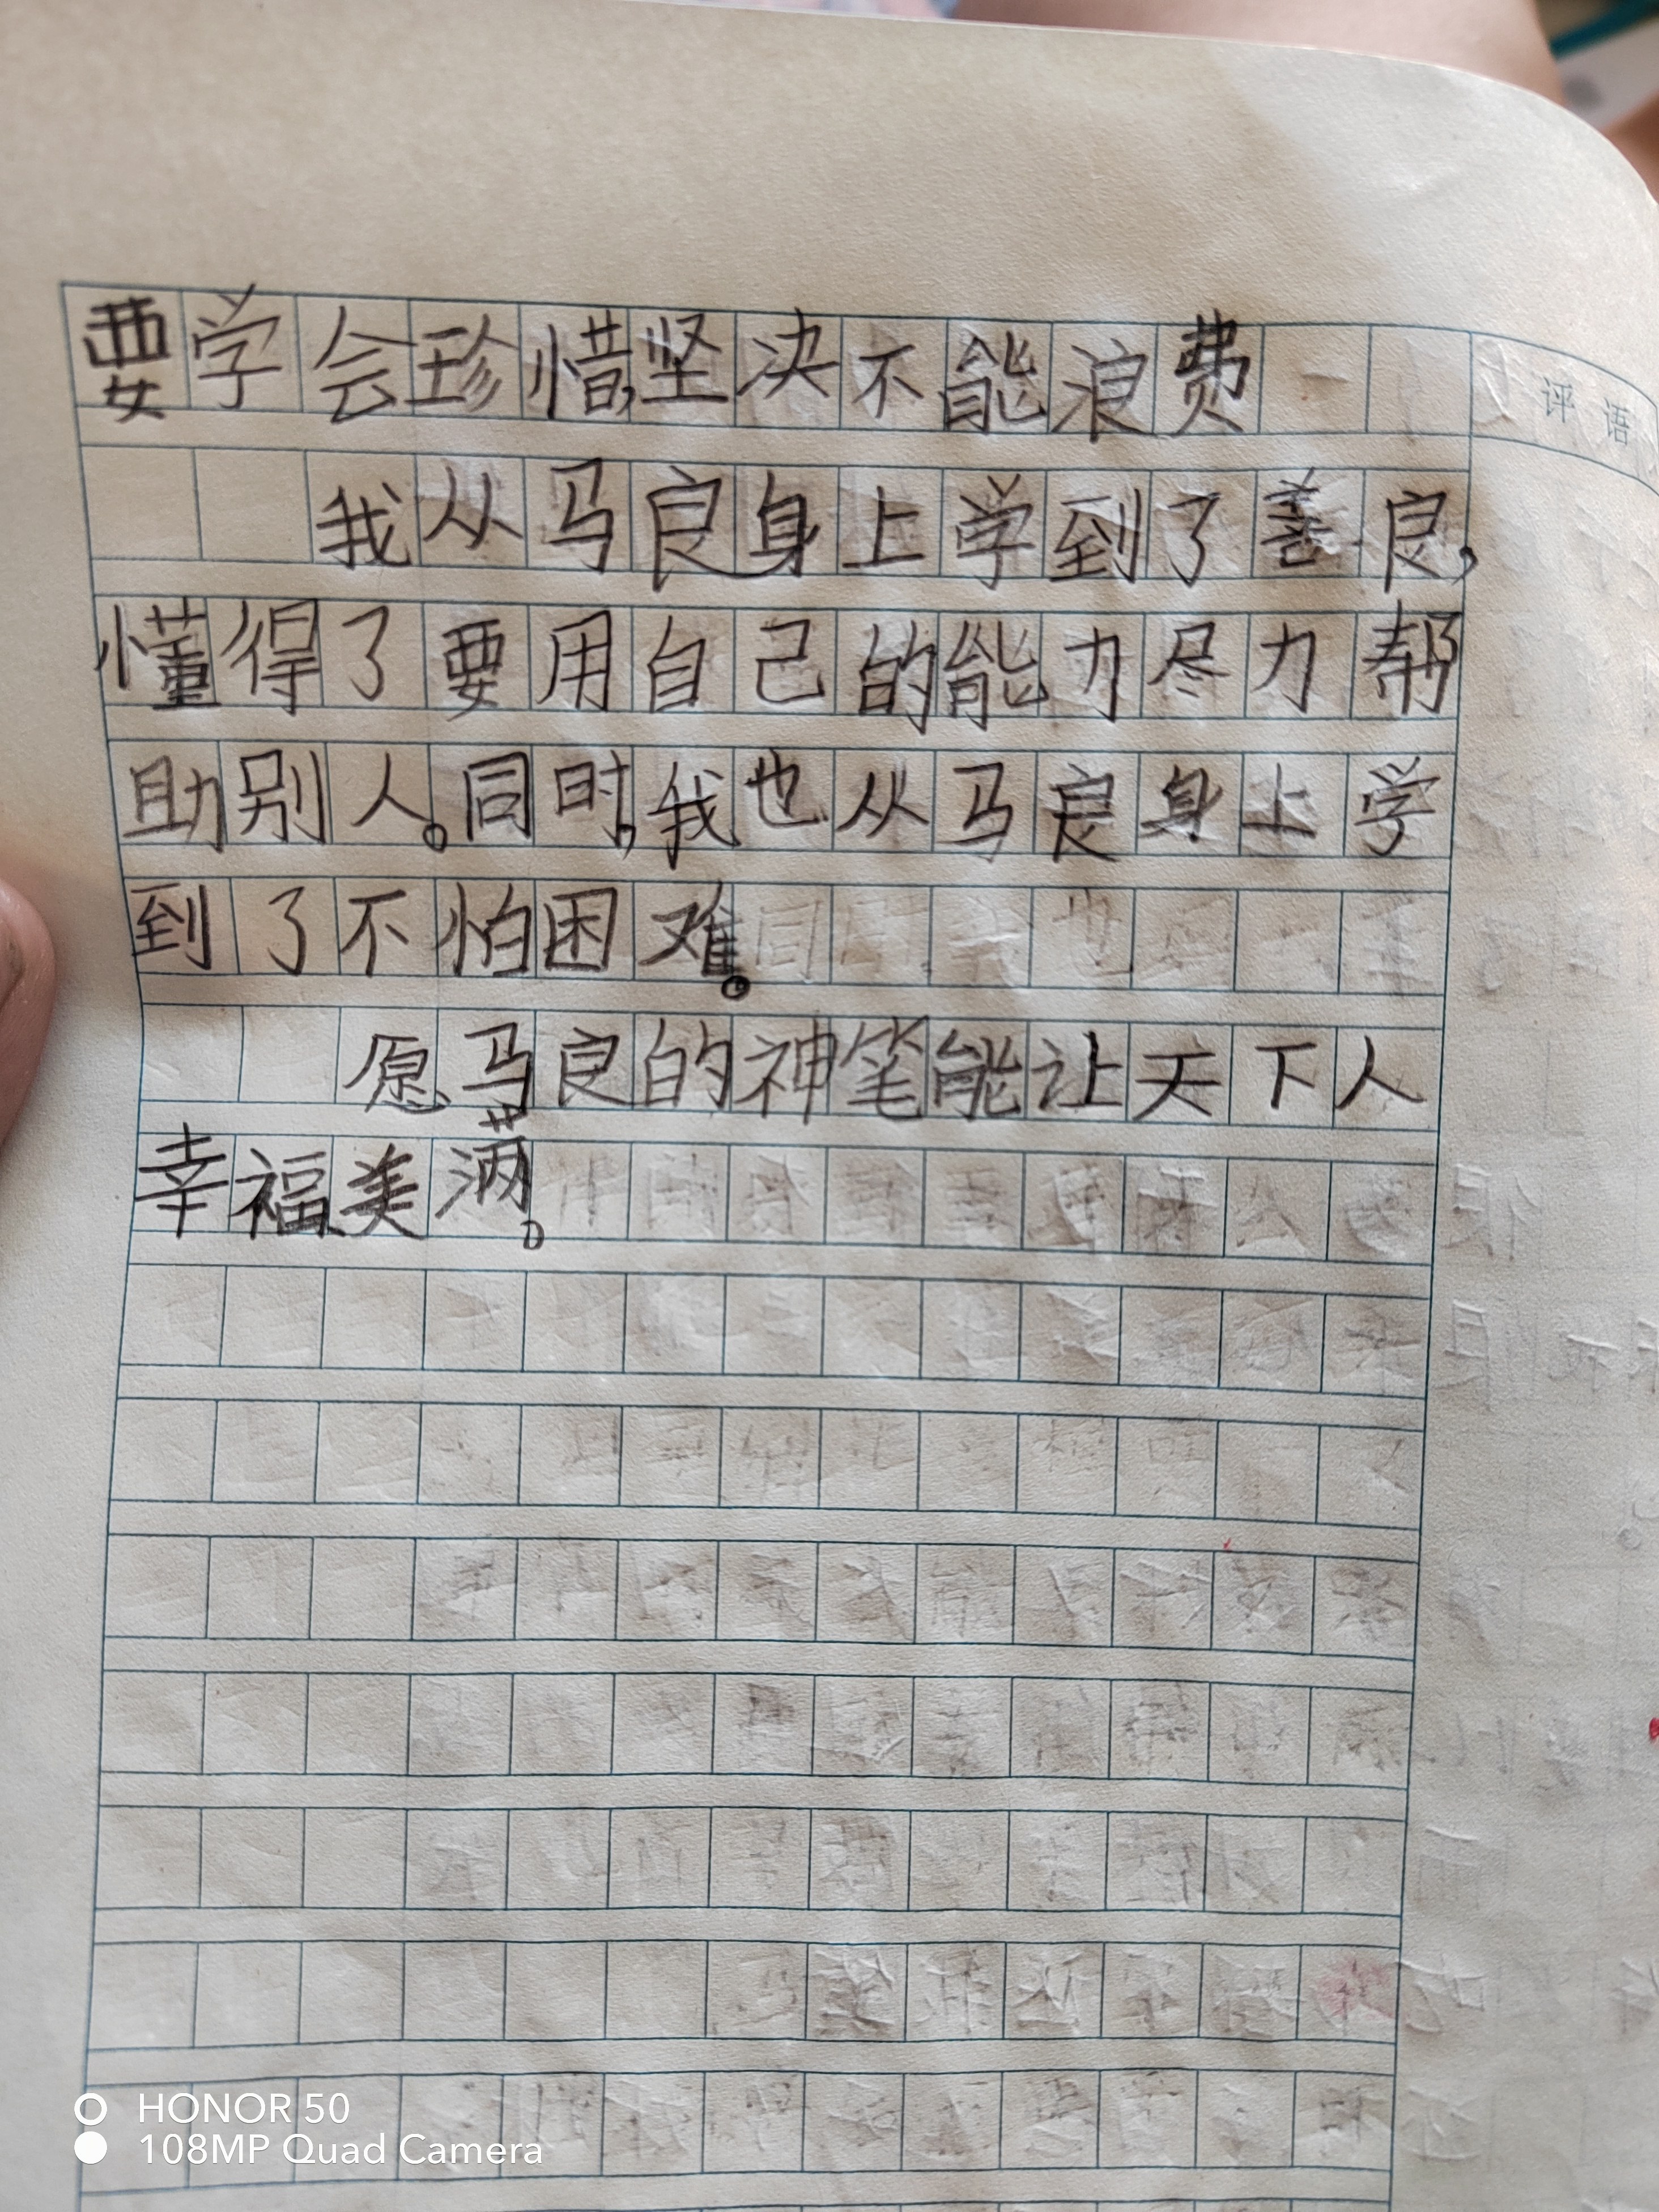 要学会珍惜,坚决不能浪费
我从马良身上学到了善良,
懂得了要用自己的能力尽力帮
助别人。同时,我也从马良身上学
到了不怕困难。
愿马良的神笔能让天下人
幸福美满。
评语
HONOR 50
108MP Quad Camera